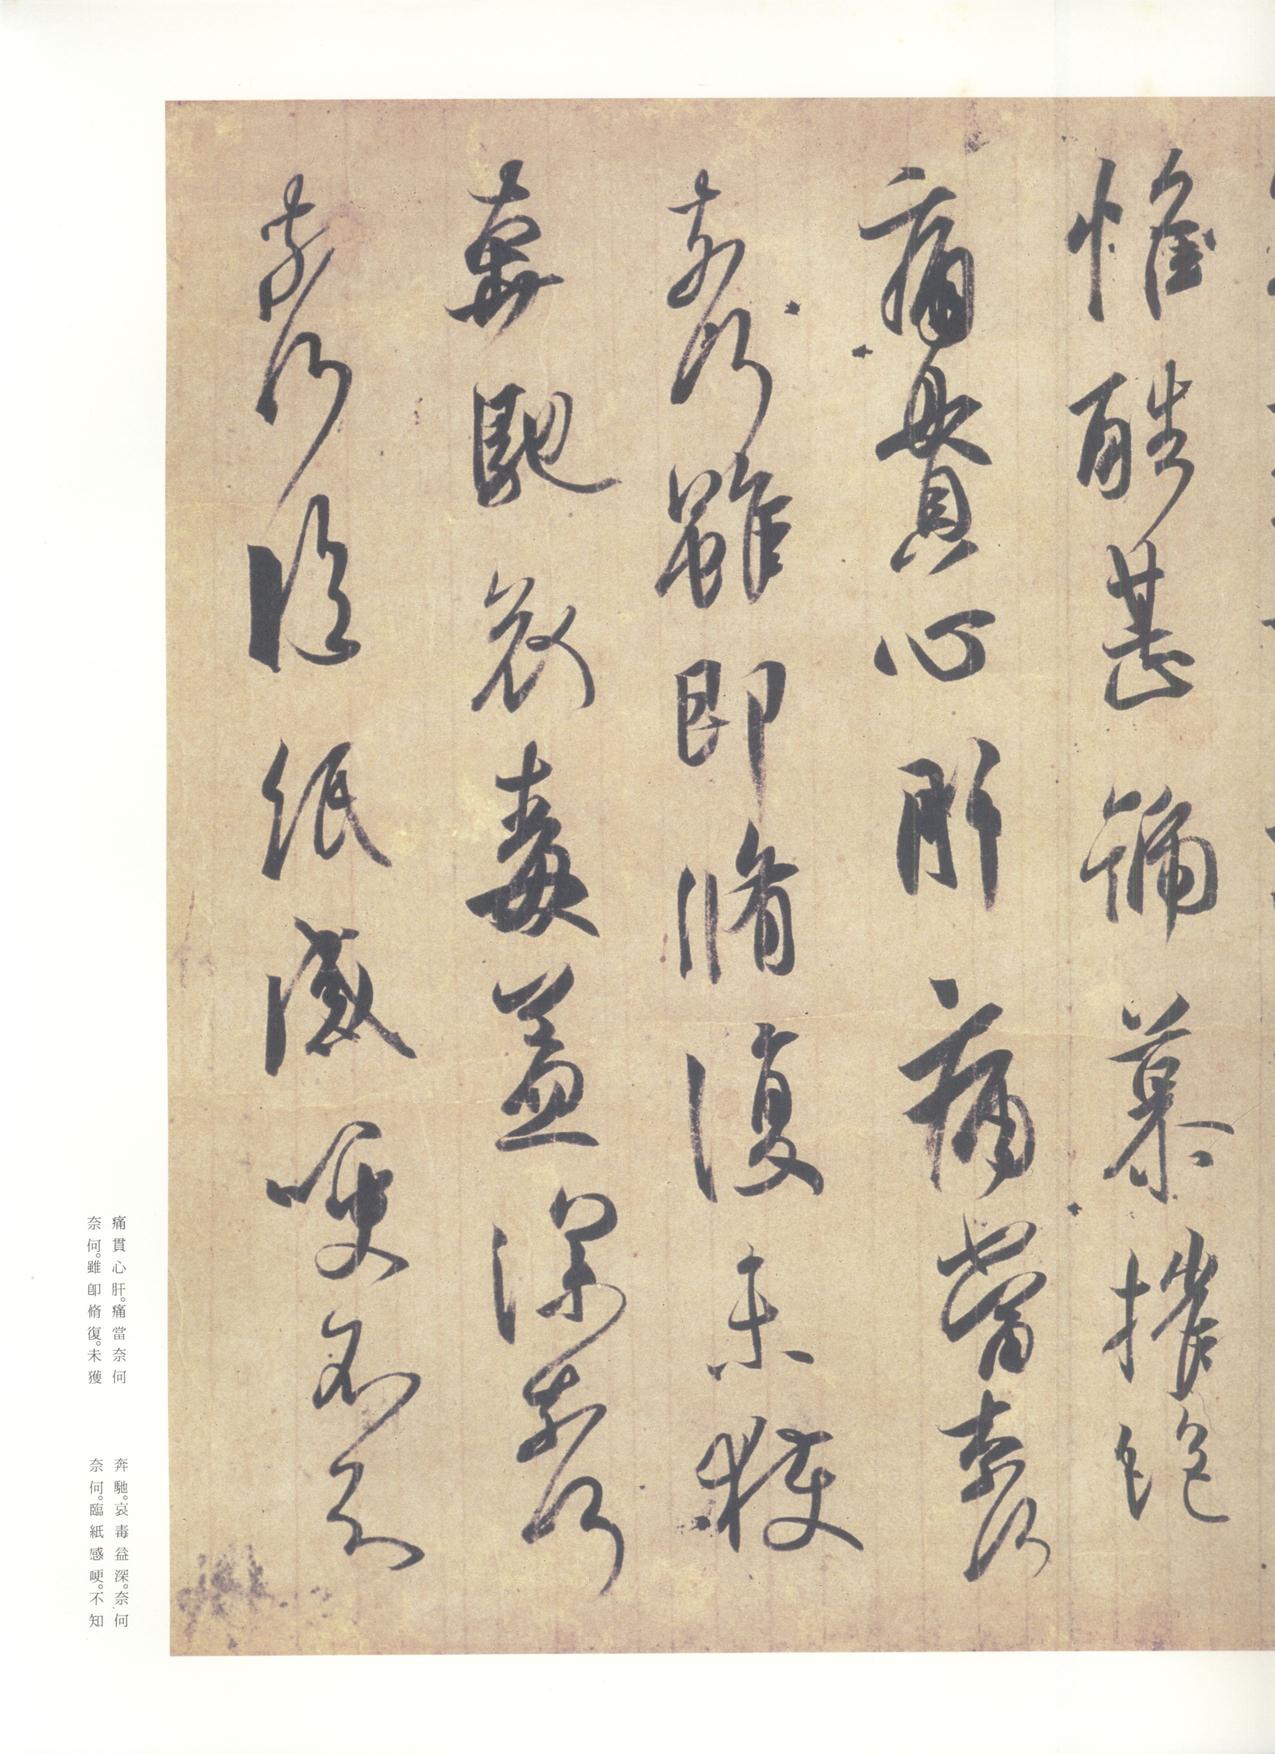 惟酷甚號慕摧絕
痛貫心肝痛當奈何
奈何雖即脩復未獲
奔馳哀毒益深奈何
奈何臨紙感哽不知
痛貫心肝。痛當奈何
奈何。雖卽脩復。未獲
奔馳。哀毒益深。奈何
奈何。臨紙感哽。不知